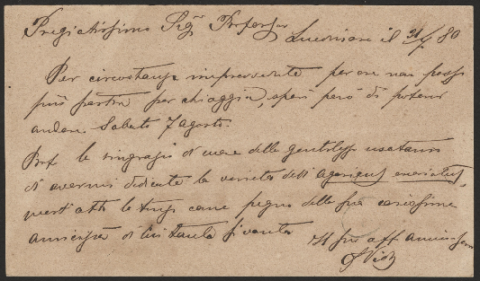 Pregiatissimo Sigr Professore
li 31/7 80
Per circostanze imprevvedute per ora non posso
più partir per Chioggia, spero però di potervi
andare Sabato 7 Agosto.
la ringrazio di cuore della gentilezza usatami
di avermi dedicato la varietà dell' Agaricus
quest' atto le come pegno della sua carissima
amicizia di cui tanto
Il suo aff